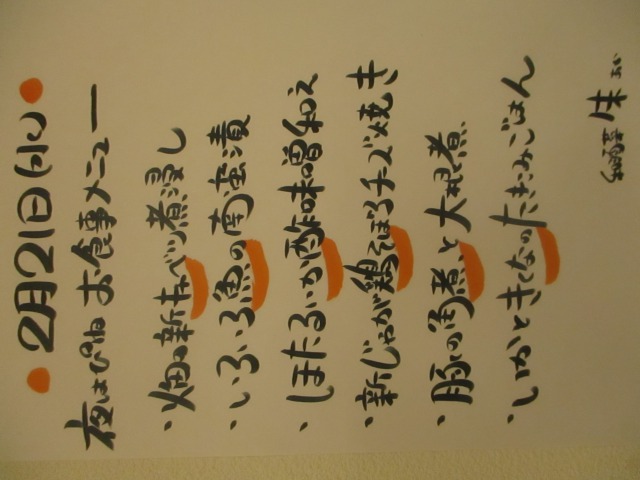 2月21日(水)
夜はぴね お食事メニュー
・畑の新キャベツ煮浸し
・いろいろ魚の南蛮漬
・ほたるいか酢味噌和え
・新じゃが鶏そぼろチーズ焼き
・豚の角煮と大根煮
・いかときくなのたきこみごはん